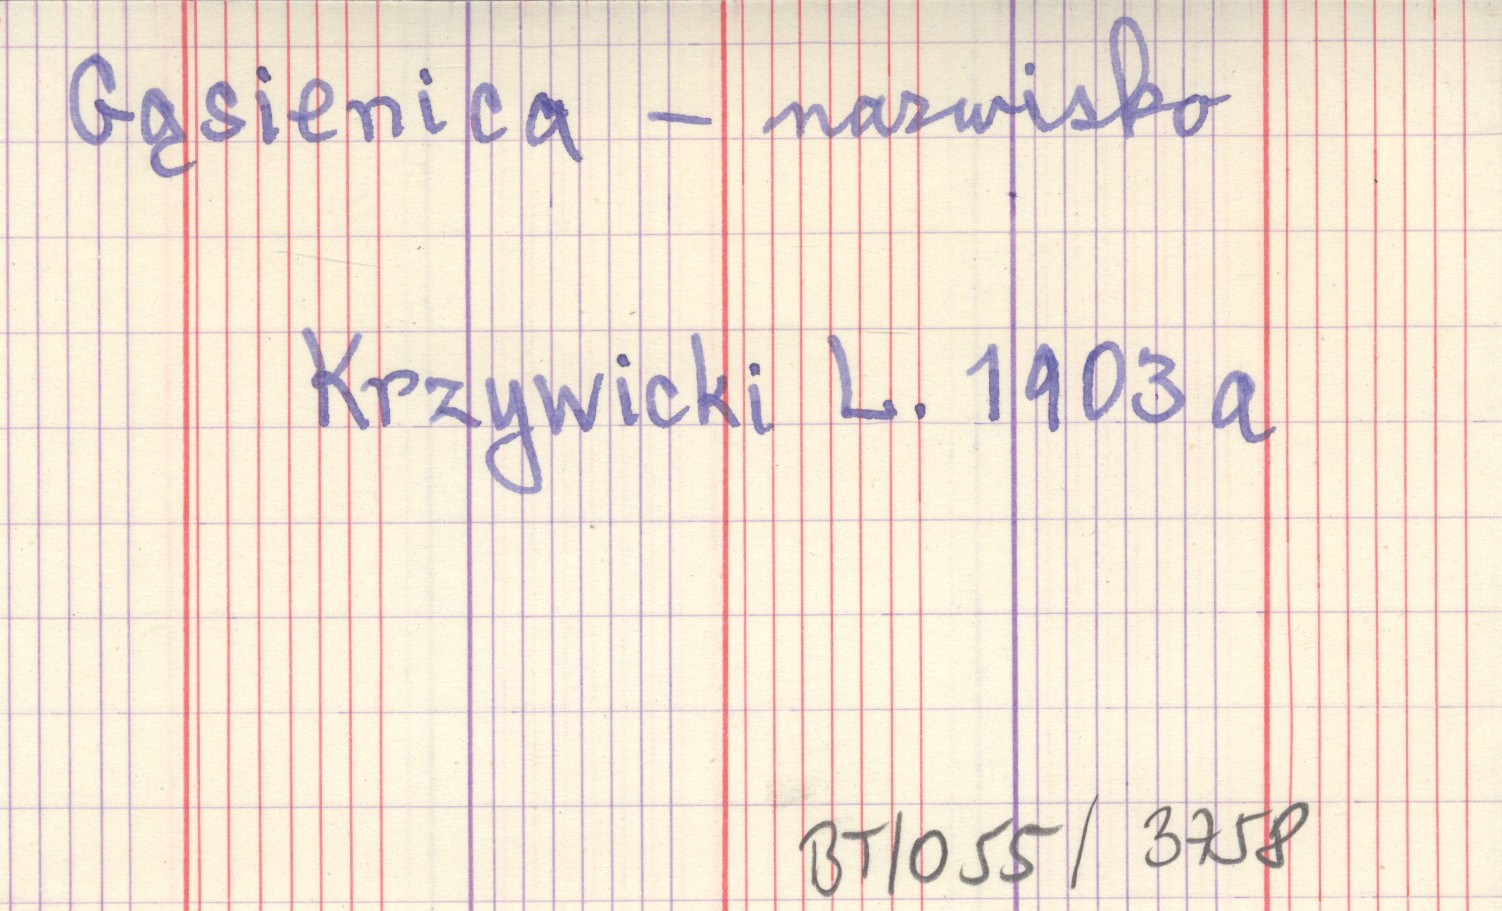 Gąsienica – nazwisko
Krzywicki L. 1903 a
BT/055/ 3758